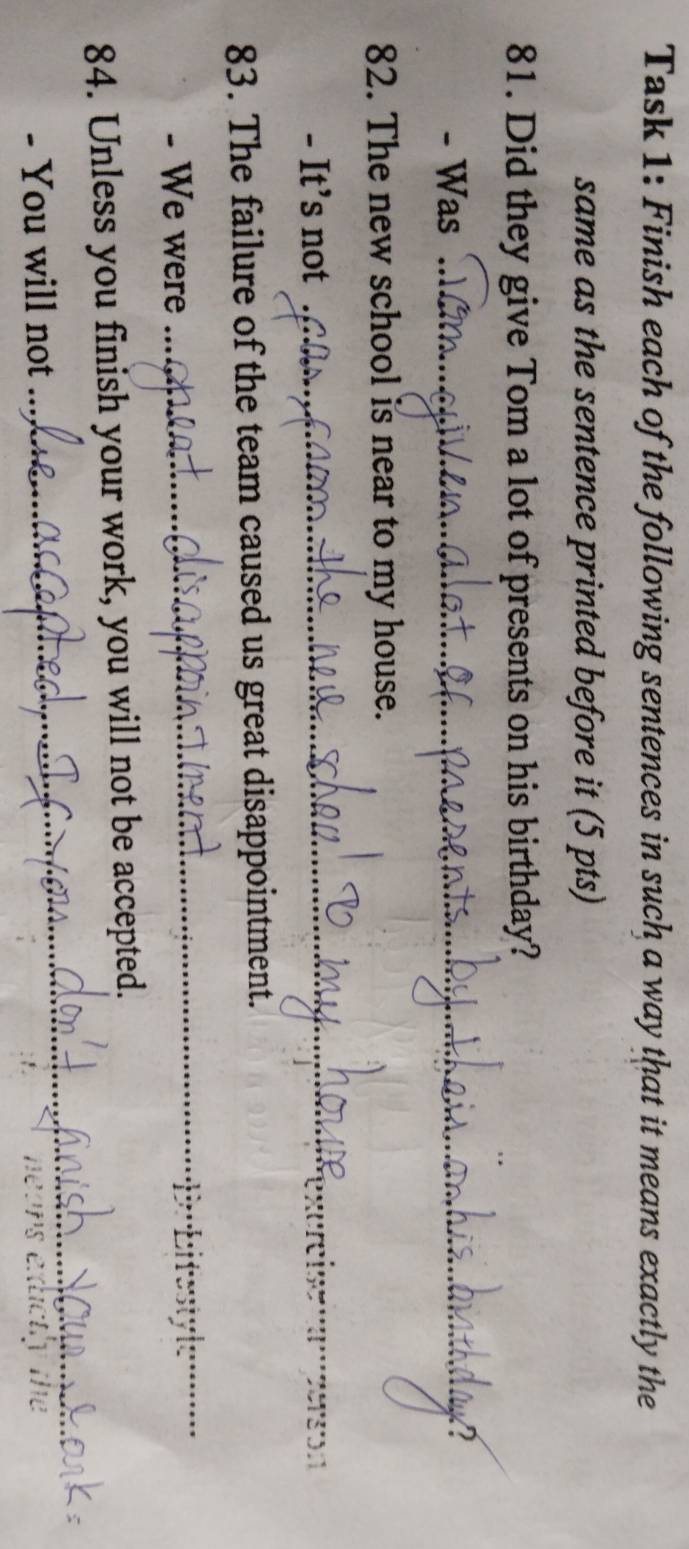 Task 1: Finish each of the following sentences in such a way that it means exactly the
same as the sentence printed before it (5 pts)
81. Did they give Tom a lot of presents on his birthday?
- Was ..Tom given a lot of presents by their on his birthday?
82. The new school is near to my house.
- It's not far from the new shool to my house
83. The failure of the team caused us great disappointment.
- We were ...great disappointment
84. Unless you finish your work, you will not be accepted.
- You will not ...be accepted, If you don't finish your work.